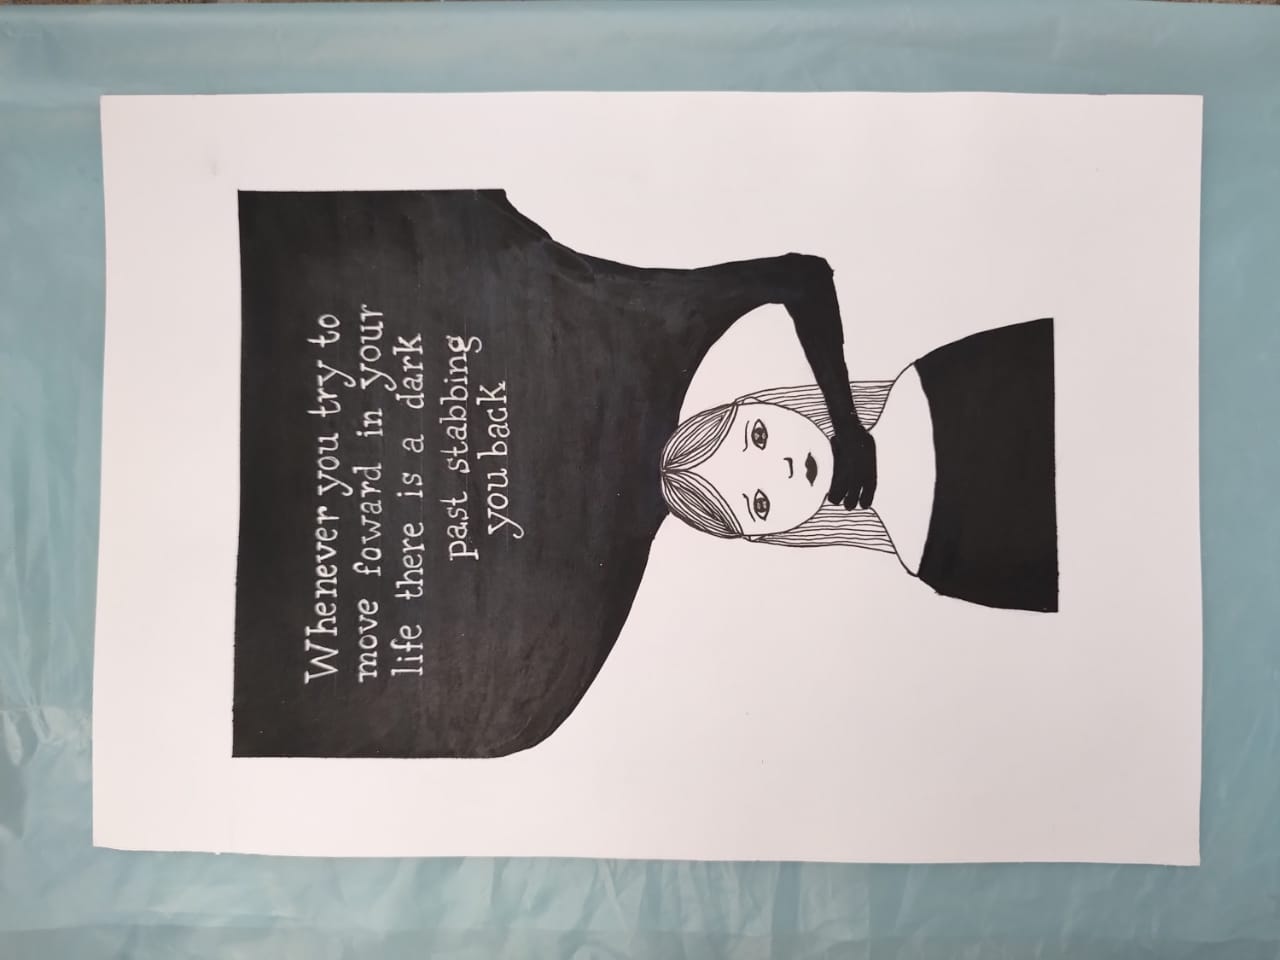 Whenever you try to
move foward in your
life there is a dark
past stabbing
you back